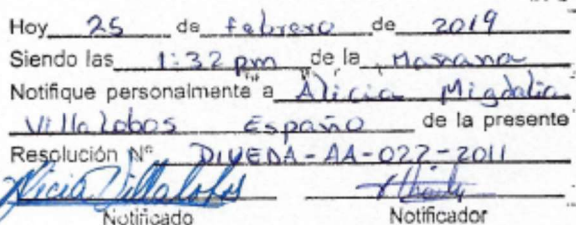 Hoy 25 de febrero de 2019
Siendo las 1:32 pm de la Manana
Notifique personalmente a Alicia Migdalia
Villalobos Españo de la presente
Resolución Nº DIVEDA-AA-022-2011
Alicia Villalobos
Notificado Notificador